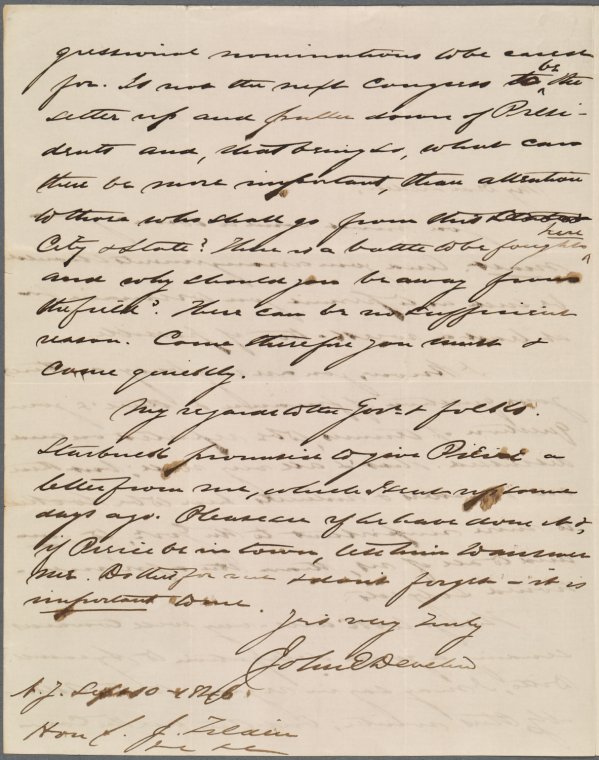 gressional nominations to be cared
for. Is not the next Congress to be the
setter up and puller down of Presi-
dents and, that being so, what can
there be more important, than attention
to those who shall go from this
City & State? There is a battle to be fought here
and why should you be away from
the field? There can be no sufficient
reason. Come therefore you must &
come quickly.
My regards to the Gov. & folks.
Starbuck promised to give Peirce a
letter from me, which I sent up some
days ago. Please see if he have done it &,
if Peirce be in town, let him to answer
me. Do this for me & don't forget - it is
important to me.
Yrs very truly
John E Devlin
N.Y. Sept 10 1846.
Hon S. J. Tilden
&c &c